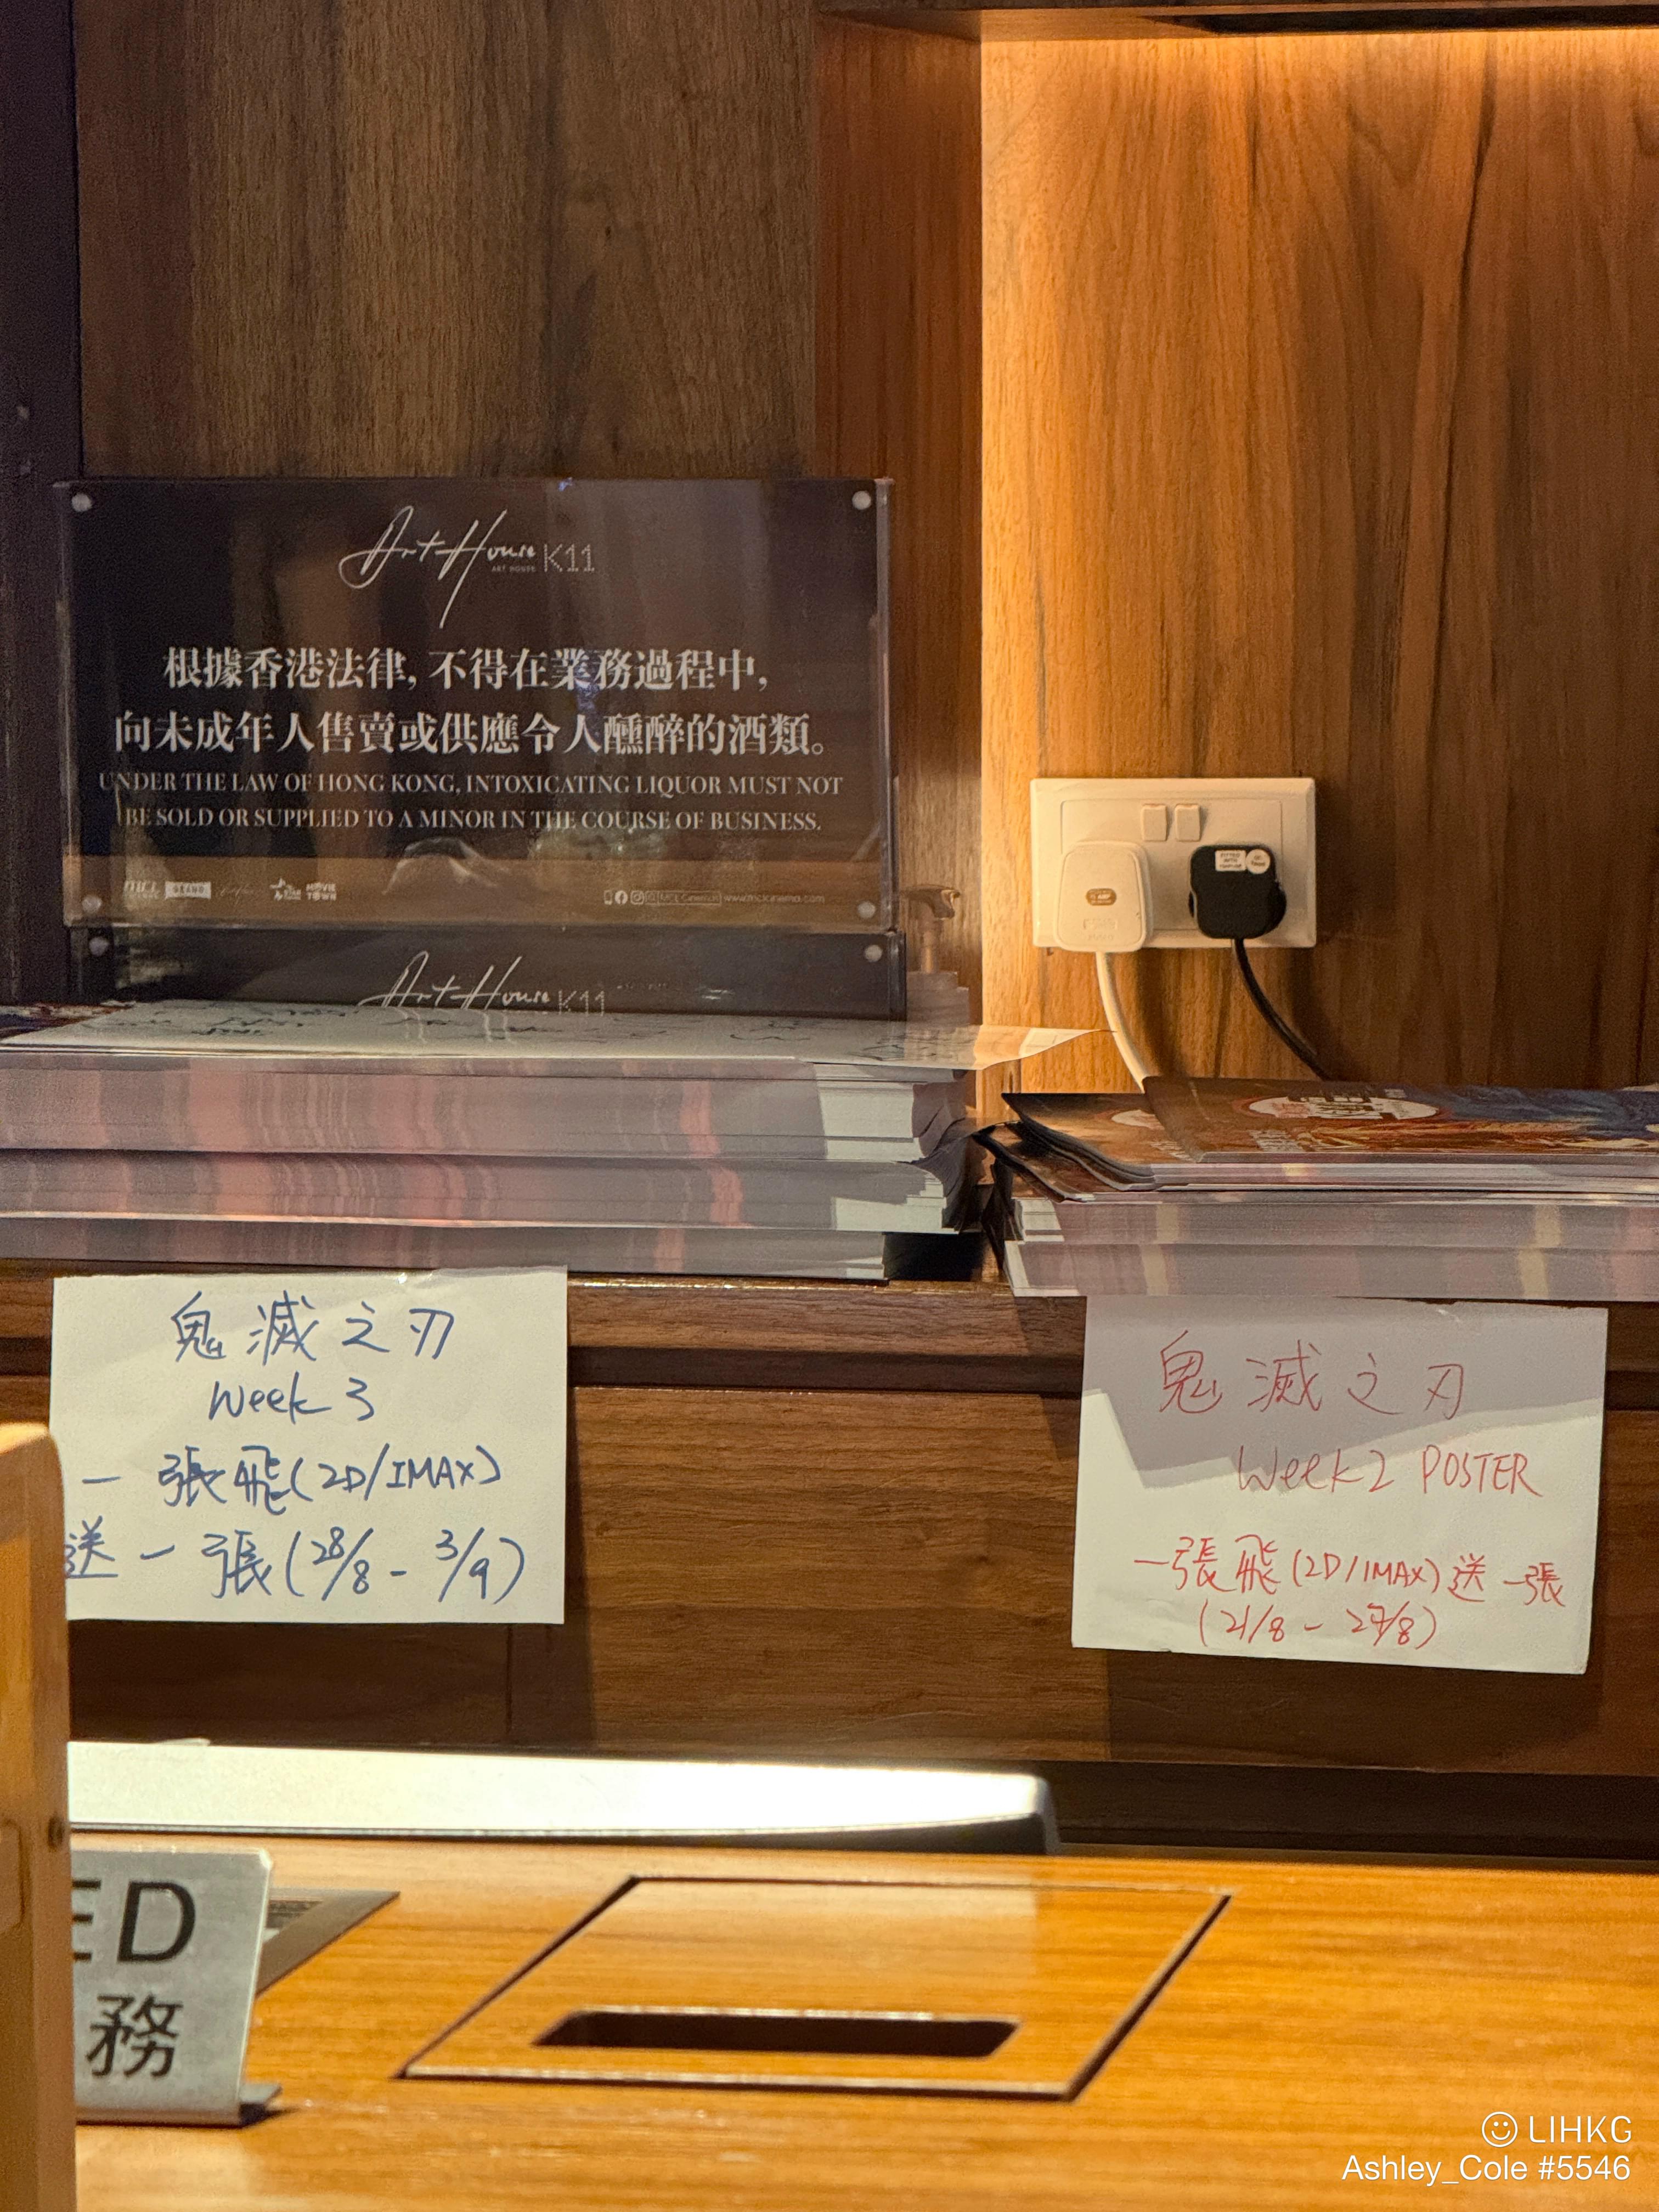 Art House K11
ART HOUSE
根據香港法律, 不得在業務過程中,
向未成年人售賣或供應令人醺醉的酒類。
UNDER THE LAW OF HONG KONG, INTOXICATING LIQUOR MUST NOT
BE SOLD OR SUPPLIED TO A MINOR IN THE COURSE OF BUSINESS.
MCL GRAND MOVIE TOWN
www.mclcinema.com
Art House K11
鬼滅之刃
Week 3
一張飛(2D/IMAX)
送一張(28/8 - 3/9)
鬼滅之刃
Week2 POSTER
一張飛(2D/IMAX)送一張
(21/8 - 27/8)
ED
務
LIHKG
Ashley_Cole #5546